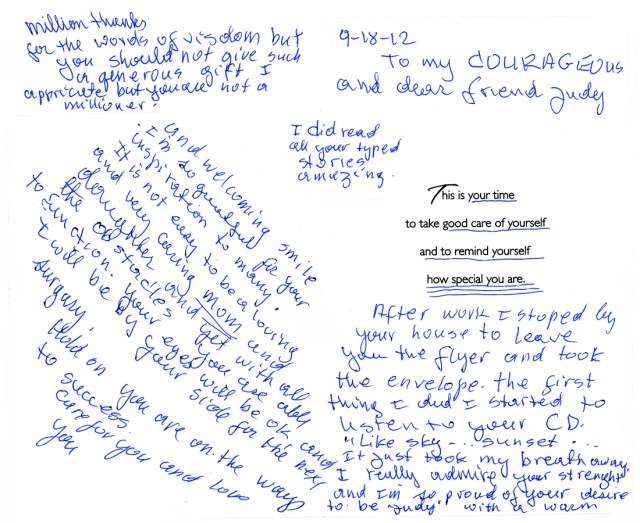 9-18-12
To my COURAGEOUS
and dear friend Judy
This is your time
to take good care of yourself
and to remind yourself
how special you are.
After work I stoped by
your house to leave
you the flyer and took
the envelope. the first
thing I did I started to
listen to your CD.
"Like sky -.. sunset ...
It just took my breath away.
I really admire your strenght
and I'm so proud of your desire
to be Judy with a warm
and welcoming smile
. I'm so grateful for your
inspiration to many.
It is not easy to be a loving
and very caring mom and
daughter and get with all
the obstacles you are able
to function. your eyes will be ok and
I will be by your side for the next
surgary.
Hold on you are on the way
to success.
care for you and love
you
million thanks
for the words of visdom but
you should not give such
a generous gift I
appriciate but you are not a
millioner.
I did read
all your typed
stories
amazing.